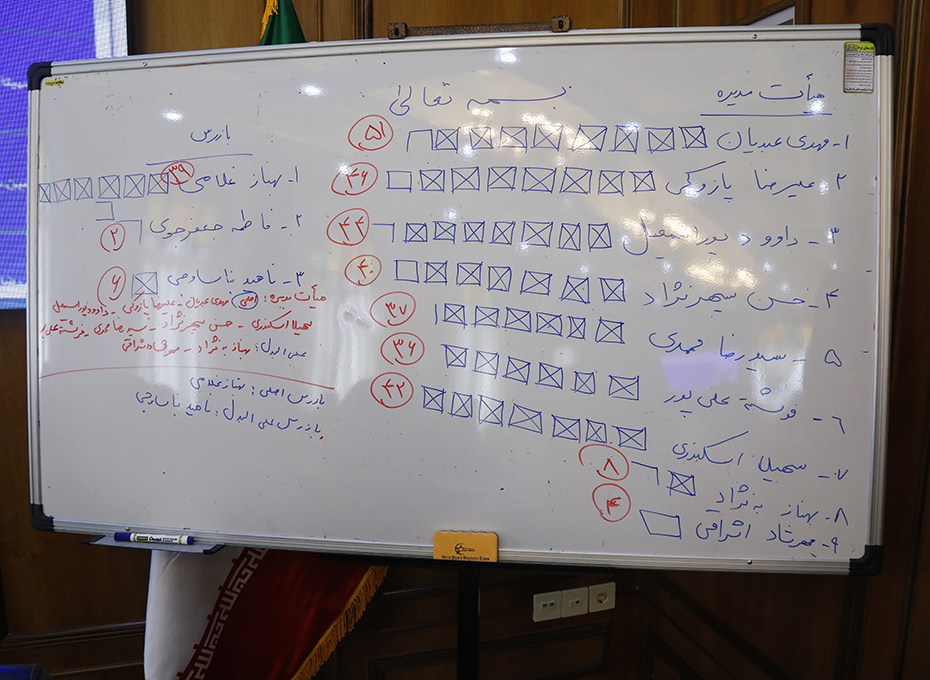 بسمه تعالی
هیأت مدیره
۱- مهدی عبدیان ۵۱
۲- علیرضا پازوکی ۴۶
۳- داوود پوراسمعیل ۴۴
۴- حسن سپهرنژاد ۴۰
۵- سیدرضا محمدی ۳۷
۶- فرشته علی پور ۳۶
۷- سهیلا اسکندری ۴۲
۸- بهناز به نژاد ۸
۹- مهرشاد اشراقی ۴
بازرس
۱- بهناز غلامی ۳۹
۲- فاطمه جعفرجوی ۲
۳- ناهید ناساوجی ۶
هیأت مدیره: اصلی مهدی عبدیان - علیرضا پازوکی - داوود پوراسمعیل
سهیلا اسکندری - حسن سپهرنژاد - سیدرضا محمدی - فرشته علی پور
علی البدل: بهناز به نژاد - مهرشاد اشراقی
بازرس اصلی: بهناز غلامی
بازرس علی البدل: ناهید ناساوجی